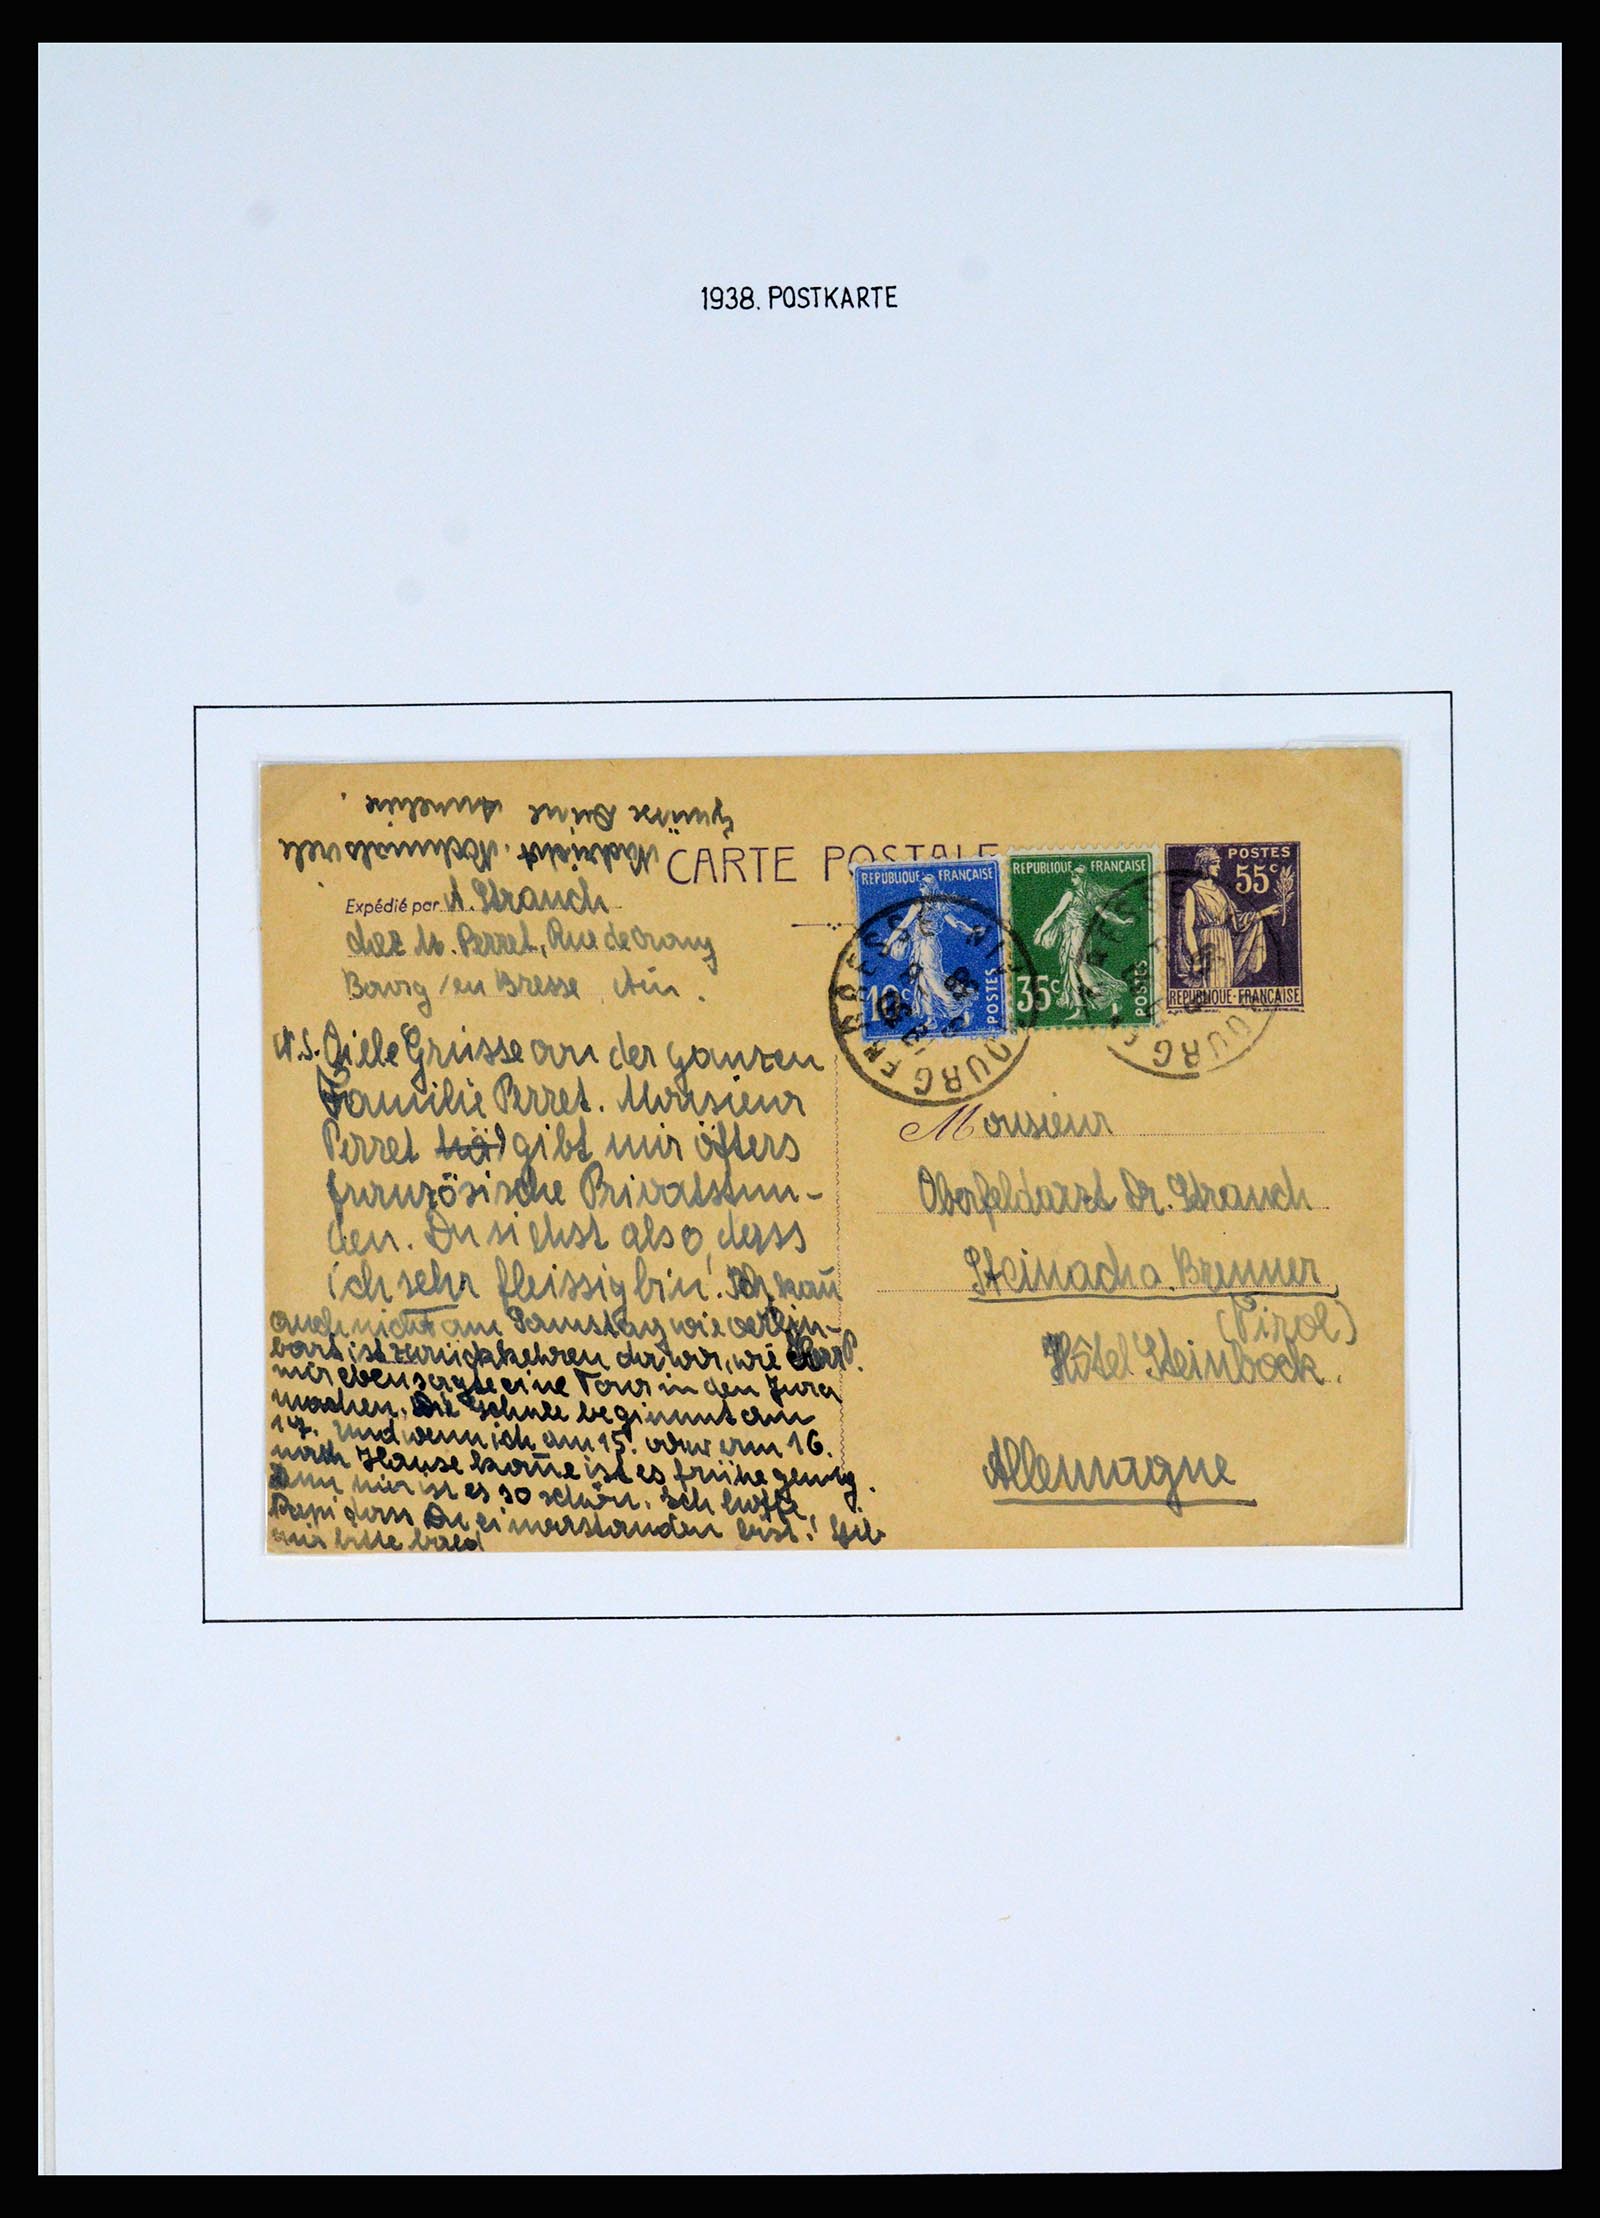 1938. POSTKARTE
CARTE POSTALE
Nachricht. Nochmals viele
Grüsse Deine Anneliese.
Expédié par A. Strauch
chez M. Perret, Rue de
Bourg / en Bresse, Ain.
REPUBLIQUE FRANÇAISE
10c
POSTES
REPUBLIQUE FRANÇAISE
35c
POSTES
POSTES
55c
REPUBLIQUE-FRANÇAISE
N.S. Viele Grüsse von der ganzen
Familie Perret. Monsieur
Perret gibt mir öfters
französische Privatstun-
den. Du siehst also, dass
ich sehr fleissig bin! Ich kan̄
auch nicht am Samstag wie verein-
bart ist zurückkehren da wir, wie Herr P.
mir eben sagte eine Tour in den Jura
machen. Die Schule beginnt am
17. und wenn ich am 15. oder am 16.
nach Hause kom̄e ist es frühe genug.
Denn hier ist es so schön. Ich hoffe
Papi dass Du einverstanden bist! Gib
mir bitte bald
Monsieur
Oberfeldarzt Dr. Strauch
Steinach a. Brenner
(Tirol)
Hôtel Steinbock.
Allemagne